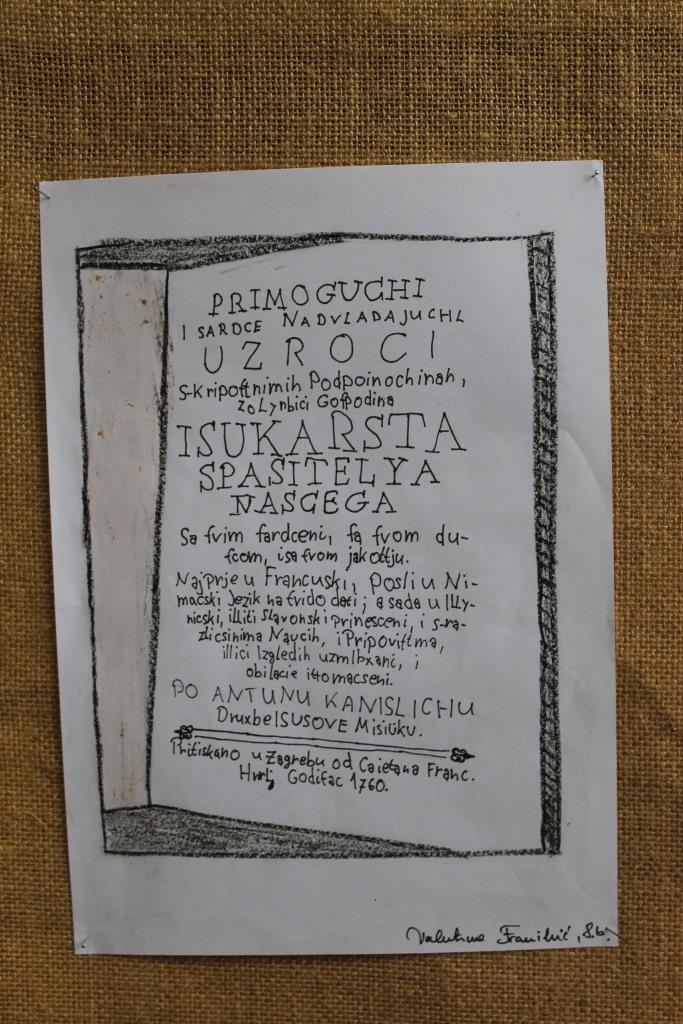 PRIMOGUCHI
I SARDCE NADVLADAJUCHI
UZROCI
S-kripoſtnimih Podpoinochinah,
zoLynbici Goſpodina
ISUKARSTA
SPASITELYA
NASCEGA
Sa ſvim ſardceni, ſa ſvom du-
ſcom, isa ſvom jakottju.
Najprje u Francuski, posli u Ni-
macski Jezik na ſvido dati; a sada u Illy-
ricski, illiti Slavonski prinesceni, i s-ra-
zlicsinima Naucih, i Pripoviſtma,
illici Izgledih uzmlxani, i
obilacie i4omacseni.
PO ANTUNU KANISLICHU
Druxbe ISUSOVE Misiüku.
Pritiskano u Zagrebu od Caietana Franc.
Hörlj Godifac 1760.
Valentina Franilić, 8.b.